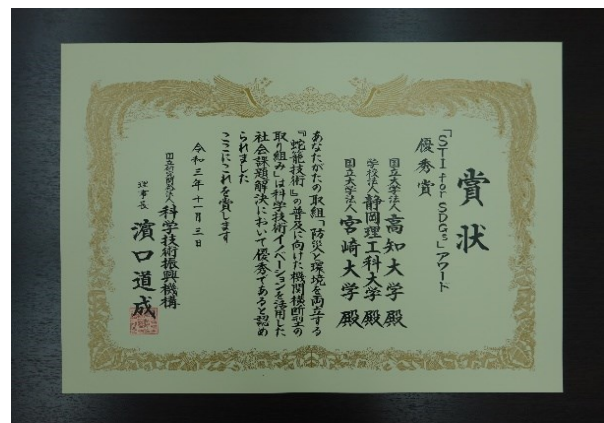 賞状
「STI for SDGs」アワード
優秀賞
国立大学法人 高知大学 殿
学校法人 静岡理工科大学 殿
国立大学法人 宮崎大学 殿
あなたがたの取組「防災と環境を両立する
『蛇籠技術』の普及に向けた機関横断型の
取り組み」は科学技術イノベーションを活用した
社会課題解決において優秀であると認め
られました
ここにこれを賞します
令和三年十一月三日
国立研究開発法人 科学技術振興機構
理事長 濵口道成